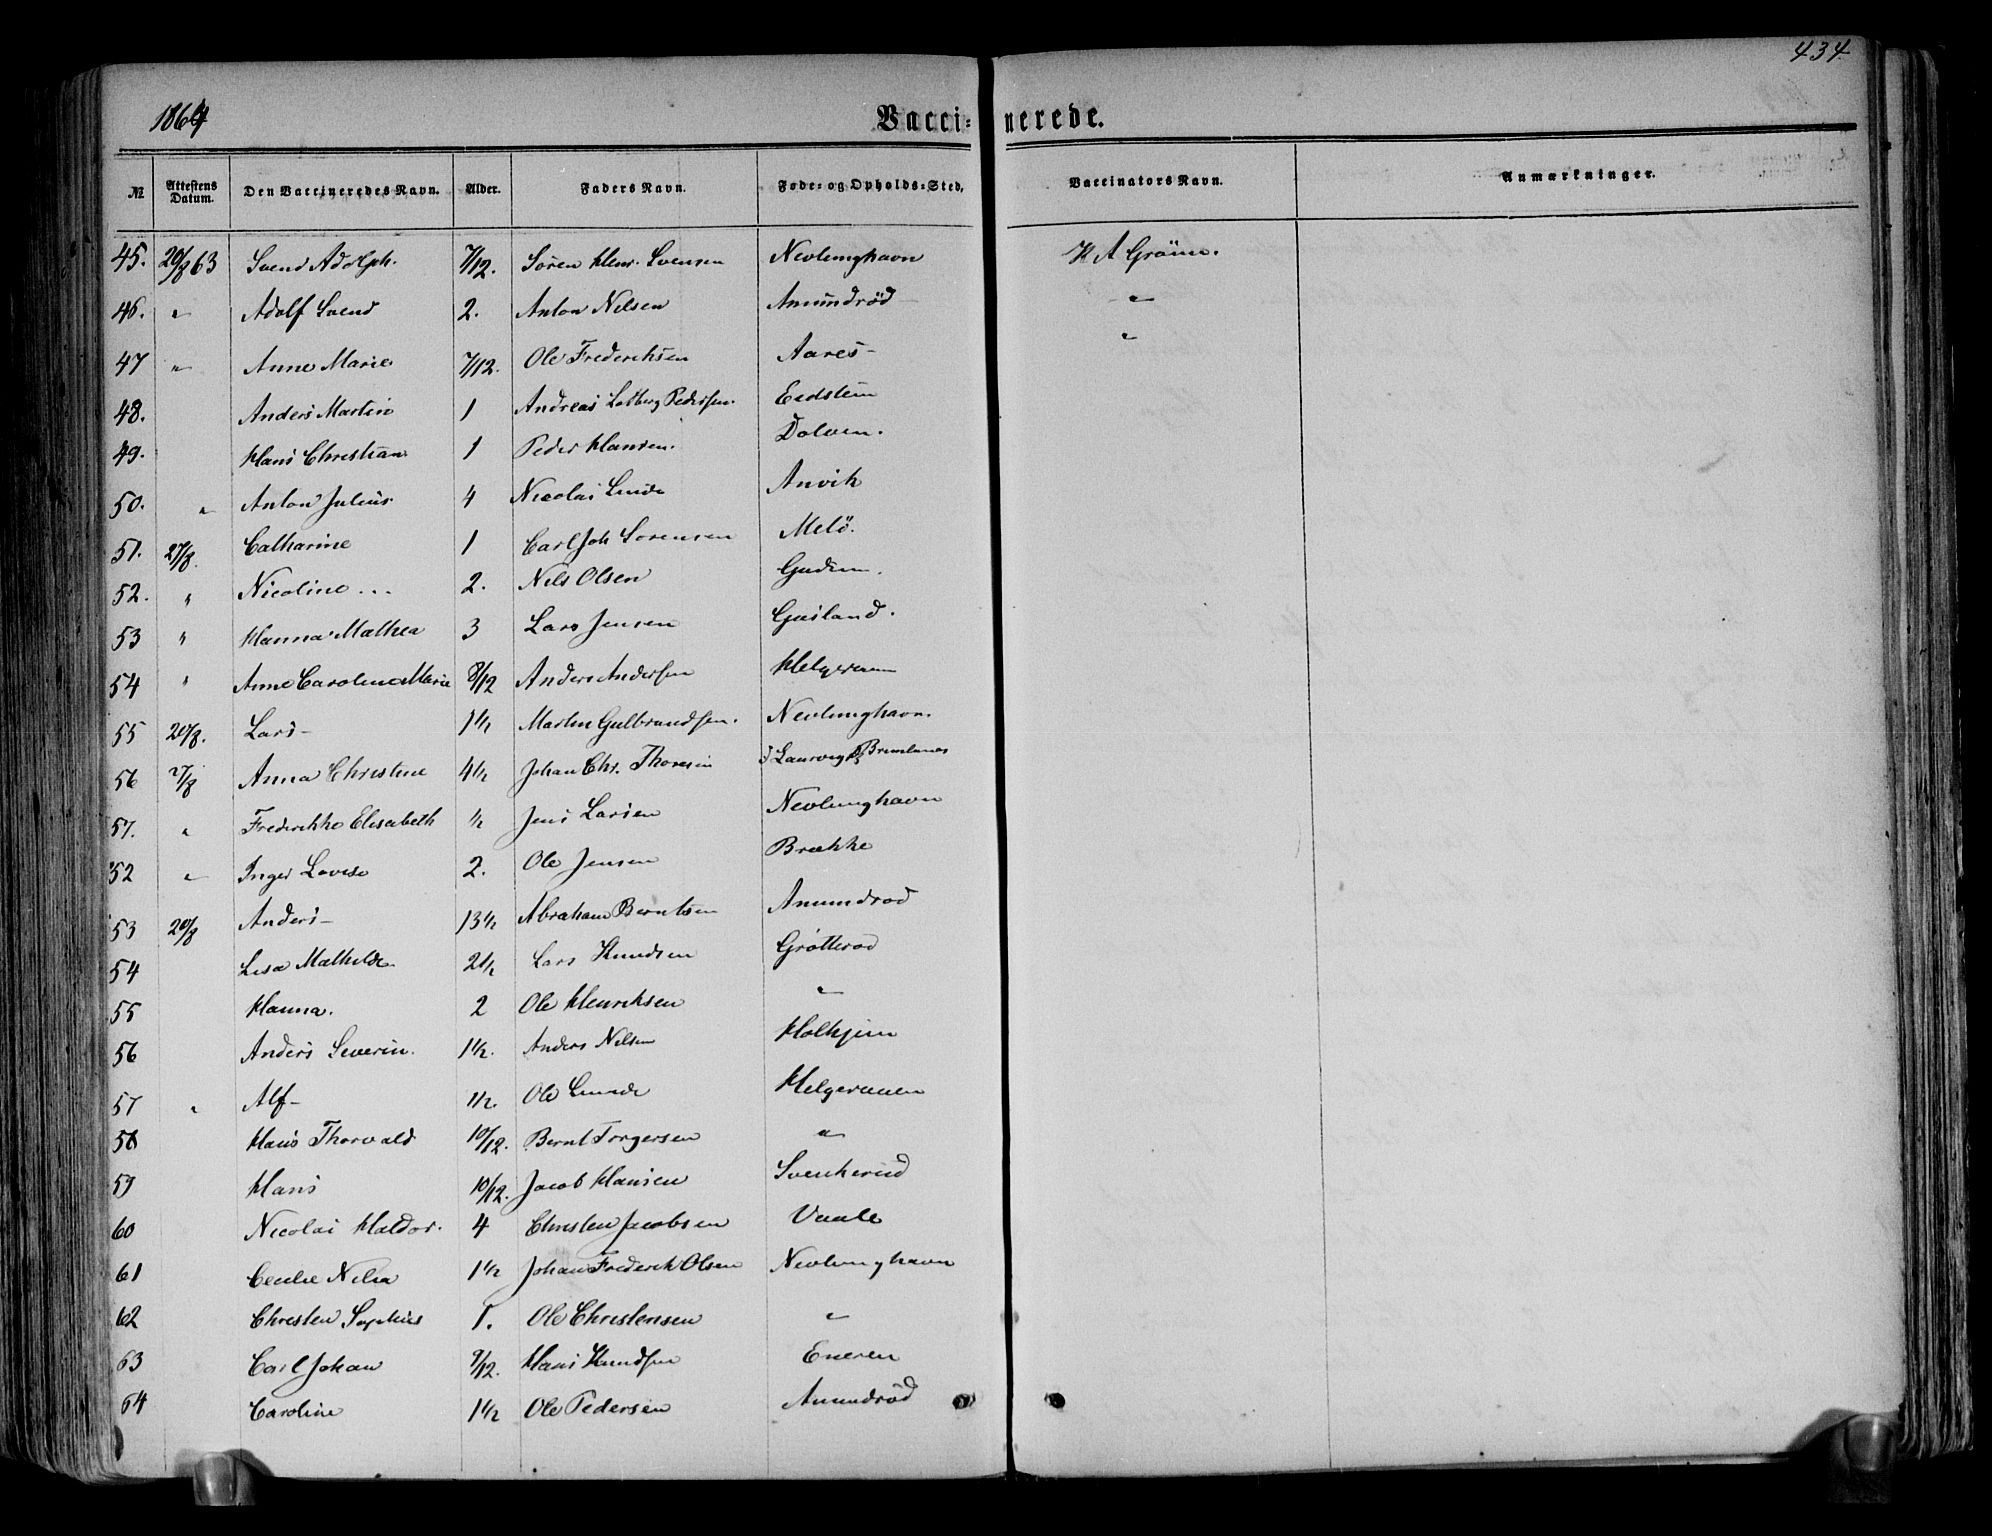 434.
1864 Vaccinerede.
№ Attestens Datum. Den Vaccineredes Navn. Alder. Faders Navn. Føde- og Opholds-Sted. Vaccinators Navn. Anmærkninger.
45. 20/8 63 Svend Adolph. 7/12. Sören Henr. Svensen Nevlunghavn K A Gröm.
46. " Adolf Svend 2. Anton Nilsen Anundröd "
47 " Anne Marie 7/12. Ole Frederiksen Aares "
48. Anders Martin 1 Andreas Pedersen. Eidsten
49. Hans Christian 1 Peder Hansen. Dolven.
50. " Anton Julius 4 Nicolai Lunde Anvik
51. 27/8. Catharine 1 Carl Joh Sorensen Melö.
52. " Nicoline... 2. Nils Olsen Gudem.
53 " Hanna Mathea 3 Lars Jensen Gusland.
54 " Anne Caroline Marie 8/12 Anders Andersen Helgeraaen
55 20/8. Lars 1 1/2 Martin Gulbrandsen. Nevlunghavn.
56 27/8 Anna Christine 4 1/2 Johan Chr. Thoresen Laurvig Brunlanes
57. " Frederikke Elisabeth 1/2 Jens Larsen Nevlunghavn
52 " Inger Lovise 2. Ole Jensen Brække
53 20/8 Anders 13 1/2 Abraham Berntsen Anundrod
54 Lisa Mathilde 2 1/2 Lars Knudsen Gröttrod
55 Hanna. 2 Ole Henriksen "
56 Anders Severin. 1 1/2. Anders Nilsen Holhjem
57 " Alf 1/2. Ole Lunde Helgeraaen
58 Hans Thorvald 10/12. Bernt Torgersen "
59 Hans 10/12. Jacob Hansen Svenkerud
60 Nicolai Haldor. 4 Christen Jacobsen Vaale
61 Cecilie Nilia 1 1/2 Johan Frederik Olsen Nevlunghavn
62 Christen Sophius 1. Ole Christensen "
63 Carl Johan 9/12. Hans Knudsen Eneren
64 Caroline 1 1/2 Ole Pedersen Anundröd